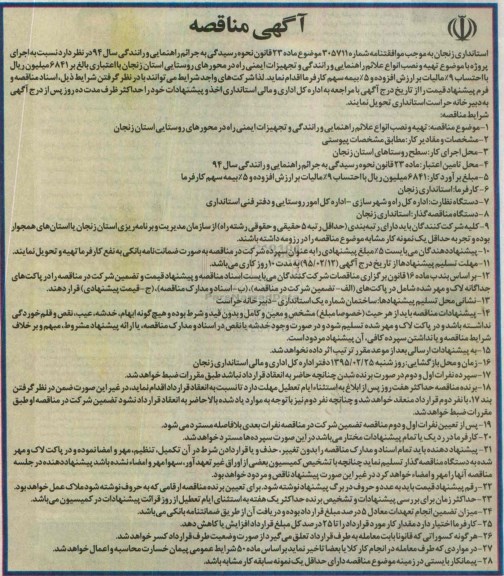 آگهی مناقصه
استانداری زنجان به موجب موافقتنامه شماره ۳۰۵۷۱۱ موضوع ماده ۲۳ قانون نحوه رسیدگی به جرائم راهنمایی و رانندگی سال ۹۴ در نظر دارد نسبت به اجرای
پروژه با موضوع تهیه و نصب انواع علائم راهنمایی و رانندگی و تجهیزات ایمنی راه در محورهای روستایی استان زنجان با اعتباری بالغ بر ۶۸۴۱ میلیون ریال
با احتساب ۹٪ مالیات بر ارزش افزوده و ۵٪ بیمه سهم کارفرما اقدام نماید. لذا شرکت های واجد شرایط می توانند با در نظر گرفتن شرایط ذیل، اسناد مناقصه و
فرم پیشنهاد قیمت را از تاریخ درج آگهی با مراجعه به اداره کل اداری و مالی استانداری اخذ و پیشنهادات خود را حداکثر ظرف مدت ده روز پس از درج آگهی
به دبیرخانه حراست استانداری تحویل نمایند.
شرایط مناقصه:
۱- موضوع مناقصه: تهیه و نصب انواع علائم راهنمایی و رانندگی و تجهیزات ایمنی راه در محورهای روستایی استان زنجان
۲- مشخصات و مقادیر کار: مطابق مشخصات پیوستی
۳- محل اجرای کار: سطح روستاهای استان زنجان
۴- محل تامین اعتبار: ماده ۲۳ قانون نحوه رسیدگی به جرائم راهنمایی و رانندگی سال ۹۴
۵- مبلغ برآورد کار: ۶۸۴۱ میلیون ریال با احتساب ۹٪ مالیات بر ارزش افزوده و ۵٪ بیمه سهم کارفرما
۶- کارفرما: استانداری زنجان
۷- دستگاه نظارت: اداره کل راه و شهرسازی - اداره کل امور روستایی و دفتر فنی استانداری
۸- دستگاه مناقصه گذار: استانداری زنجان
۹- کلیه شرکت کنندگان باید دارای رتبه بندی (حداقل رتبه ۵ حقیقی و حقوقی رشته راه) از سازمان مدیریت و برنامه ریزی استان زنجان یا استان های همجوار
بوده و تجربه حداقل یک نمونه کار مشابه موضوع مناقصه را در رزومه داشته باشند.
۱۰- پیشنهاددهندگان می بایست ۵٪ مبلغ پیشنهادی را به عنوان سپرده شرکت در مناقصه به صورت ضمانت نامه بانکی به نفع کارفرما تهیه و تحویل نمایند.
۱۱- مهلت تسلیم پیشنهادها: از تاریخ درج آگهی (۹۵/۰۲/۱۲) به مدت ۱۰ روز کاری می باشد.
۱۲- بر اساس بند ب ماده ۱۶ قانون برگزاری مناقصات شرکت کنندگان می بایست اسناد مناقصه و پیشنهاد قیمت و تضمین شرکت در مناقصه را در پاکت های
جداگانه لاک و مهر شده شامل در پاکت های (الف - تضمین شرکت در مناقصه)، (ب - اسناد و مدارک مناقصه)، (ج - قیمت پیشنهادی) قرار دهند.
۱۳- نشانی محل تسلیم پیشنهادها: ساختمان شماره یک استانداری - دبیرخانه حراست
۱۴- پیشنهادات مناقصه باید از هر حیث (خصوصا مبلغ) مشخص و معین و کامل و بدون قید و شرط بوده و هیچ گونه ابهام، خدشه، عیب، نقص و قلم خوردگی
نداشته باشد و در پاکت لاک و مهر شده تسلیم شود و در صورت وجود خدشه یا نقص در اسناد و مدارک مناقصه، یا ارائه پیشنهاد مشروط، مبهم و بر خلاف
شرایط مناقصه و یا نداشتن سپرده کافی، آن پیشنهاد مردود است.
۱۵- به پیشنهادات ارسالی بعد از موعد مقرر ترتیب اثر داده نخواهد شد.
۱۶- زمان و محل بازگشایی: روز شنبه ۱۳۹۵/۰۲/۲۵ دفتر اداره کل اداری و مالی استانداری زنجان
۱۷- سپرده نفرات اول و دوم در صورت برنده شدن چنانچه حاضر به انعقاد قرارداد نباشد طبق مقررات ضبط خواهد شد.
۱۸- برنده مناقصه حداکثر هفت روز پس از ابلاغ به استثناء ایام تعطیل مهلت دارد تا نسبت به انعقاد قرارداد اقدام نماید، در غیر این صورت ضمن در نظر گرفتن
بند ۱۷، با نفر دوم قرارداد منعقد خواهد شد و چنانچه نفر دوم نیز با توجه به موارد یاد شده بالا حاضر به انعقاد قرارداد نشود تضمین شرکت در مناقصه او طبق
مقررات ضبط خواهد شد.
۱۹- پس از تعیین نفرات اول و دوم مناقصه تضمین شرکت در مناقصه نفرات بعدی بلافاصله مسترد می شود.
۲۰- کارفرما در رد یک یا تمام پیشنهادات مختار می باشد در این صورت سپرده ها مسترد خواهد شد.
۲۱- پیشنهاد دهنده باید تمام اسناد و مدارک مناقصه را بدون تغییر، حذف و یا قرار دادن شرط در آن تکمیل، تنظیم، مهر و امضا نموده و در پاکت لاک و مهر
شده به دستگاه مناقصه گذار تسلیم نماید چنانچه با تشخیص کمیسیون بعضی از اوراق غیر تعهدآور، سهوا مهر و امضاء نشده باشد پیشنهاددهنده در جلسه
مناقصه آنها را مهر و امضاء خواهد کرد در غیر این صورت پیشنهاد ناقص و مردود خواهد بود.
۲۲- رقم پیشنهاد قیمت باید به عدد و حروف در برگ پیشنهاد نوشته شود. برای تعیین برنده مناقصه ارقامی که به حروف نوشته شود ملاک عمل خواهد بود.
۲۳- حداکثر زمان برای بررسی پیشنهادات و تشخیص برنده حداکثر یک هفته به استثنای ایام تعطیل از روز قرائت پیشنهادات در کمیسیون می باشد.
۲۴- میزان تضمین انجام تعهدات معادل ۵ درصد مبلغ قرارداد بوده و دریافت آن از طریق ضمانتنامه بانکی می باشد.
۲۵- کارفرما اختیار دارد مقدار کار مورد قرارداد را تا ۲۵ درصد کل مبلغ قرارداد افزایش یا کاهش دهد.
۲۶- هر گونه کسوراتی که قانونا بابت معامله به طرف قرارداد تعلق می گیرد از صورت وضعیت طرف قرارداد کسر خواهد شد.
۲۷- در مواردی که طرف معامله در انجام کار کلا یا بعضا تاخیر نماید بر اساس ماده ۵۰ شرایط عمومی پیمان خسارت محاسبه و اعمال خواهد شد.
۲۸- پیمانکار بایستی در زمینه موضوع مناقصه دارای حداقل یک نمونه سابقه کار مشابه باشد.